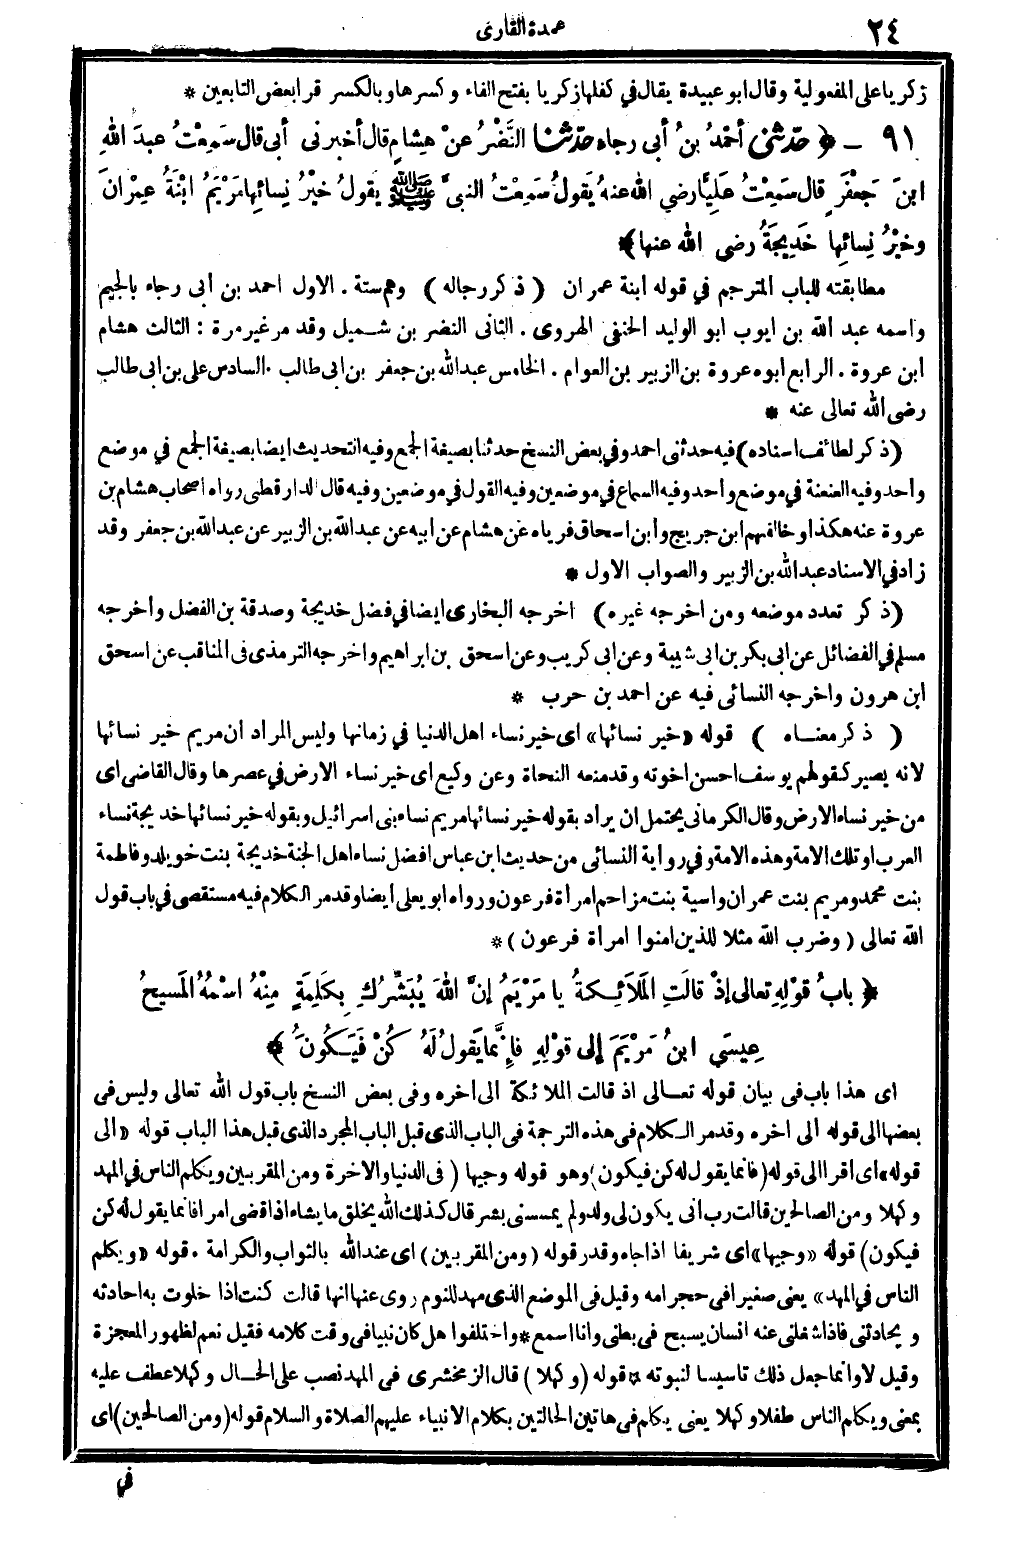 ٢٤
عمدة القارى
زكريا على المفعولية وقال ابو عبيدة يقال في كفلها زكريا بفتح الفاء وكسرها وبالكسر قرا بعض التابعين *
٩١ ـ ﴿ حَدَّثَنِي أحْمَدُ بنُ أبى رجاء حَدَّثَنَا النَّضْرُ عنْ هِشامٍ قال أخبرنى أبى قال سَمِعْتُ عبدَ اللهِ
ابنَ جَعْفَرٍ قال سَمِعْتُ عَلِيًّا رضي الله عنه يَقولُ سَمِعْتُ النبىَّ ﷺ يقولُ خيْرُ نِسائِها مَرْيَمُ ابْنَةُ عِمْرَانَ
وخيْرُ نِسائِها خَدِيجَةُ رضى الله عنها ﴾
مطابقته للباب المترجم في قوله ابنة عمران ( ذكر رجاله ) وهم ستة . الاول احمد بن أبى رجاء بالجيم
واسمه عبد الله بن ايوب ابو الوليد الحنفى الهروى . الثانى النضر بن شميل وقد مر غير مرة : الثالث هشام
ابن عروة . الرابع ابوه عروة بن الزبير بن العوام . الخامس عبد الله بن جعفر بن ابى طالب . السادس على بن ابى طالب
رضى الله تعالى عنه *
( ذكر لطائف اسناده ) فيه حدثنى احمد وفي بعض النسخ حدثنا بصيغة الجمع وفيه التحديث ايضا بصيغة الجمع في موضع
واحد وفيه العنعنة في موضع واحد وفيه السماع في موضعين وفيه القول في موضعين وفيه قال الدارقطنى رواه اصحاب هشام بن
عروة عنه هكذا وخالفهم ابن جريج وابن اسحاق فروياه عن هشام عن ابيه عن عبد الله بن الزبير عن عبد الله بن جعفر وقد
زاد في الاسناد عبد الله بن الزبير والصواب الاول *
( ذكر تعدد موضعه ومن اخرجه غيره ) اخرجه البخارى ايضا في فضل خديجة وصدقة بن الفضل وأخرجه
مسلم في الفضائل عن ابى بكر بن ابى شيبة وعن ابى كريب وعن اسحق بن ابراهيم واخرجه الترمذى فى المناقب عن اسحق
ابن هرون واخرجه النسائى فيه عن احمد بن حرب *
( ذكر معناه ) قوله «خير نسائها» اى خير نساء اهل الدنيا في زمانها وليس المراد ان مريم خير نسائها
لانه يصير كقولهم يوسف احسن اخوته وقد منعه النحاة وعن وكيع اى خير نساء الارض في عصرها وقال القاضى اى
من خير نساء الارض وقال الكرمانى يحتمل ان يراد بقوله خير نسائها مريم نساء بنى اسرائيل وبقوله خير نسائها خديجة نساء
العرب او تلك الامة وهذه الامة وفي رواية النسائى من حديث ابن عباس افضل نساء اهل الجنة خديجة بنت خويلد وفاطمة
بنت محمد ومريم بنت عمران واسية بنت مزاحم امرأة فرعون ورواه ابو يعلى ايضا وقد مر الكلام فيه مستقصى في باب قول
الله تعالى ( وضرب الله مثلا للذين امنوا امرأة فرعون ) *
﴿ بابُ قوْلِهِ تعالى إذْ قالَتِ المَلاَئِكةُ يا مَرْيَمُ إنَّ اللهَ يُبَشِّرُكِ بِكَلِمَةٍ مِنْهُ اسْمُهُ المَسِيحُ
عِيسَي ابنُ مَرْيَمَ إلى قوْلِهِ فإنَّما يَقولُ لَهُ كُنْ فَيَكُونُ ﴾
اى هذا باب في بيان قوله تعالى اذ قالت الملائكة الى اخره وفى بعض النسخ باب قول الله تعالى وليس فى
بعضها الى قوله الى اخره وقد مر الكلام فى هذه الترجمة فى الباب الذى قبل الباب المجرد الذى قبل هذا الباب قوله «الى
قوله» اى اقرا الى قوله ( فانما يقول له كن فيكون ) وهو قوله وجيها ( فى الدنيا والاخرة ومن المقربين ويكلم الناس في المهد
وكهلا ومن الصالحين قالت رب انى يكون لى ولد ولم يمسسنى بشر قال كذلك الله يخلق ما يشاء اذا قضى امرا فانما يقول له كن
فيكون ) قوله «وجيها» اى شريفا اذا جاه وقدر قوله ( ومن المقربين ) اى عند الله بالثواب والكرامة . قوله «ويكلم
الناس في المهد» يعنى صغيرا في حجر امه وقيل فى الموضع الذى مهد للنوم روى عنها انها قالت كنت اذا خلوت به احادثه
ويحادثنى فاذا شغلنى عنه انسان يسبح فى بطنى وانا اسمع * واختلفوا هل كان نبيا في وقت كلامه فقيل نعم لظهور المعجزة
وقيل لا وانما جعل ذلك تاسيسا لنبوته * قوله ( وكهلا ) قال الزمخشرى في المهد نصب على الحال وكهلا عطف عليه
بمعنى ويكلم الناس طفلا وكهلا يعنى يكلم فى هاتين الحالتين بكلام الانبياء عليهم الصلاة والسلام قوله ( ومن الصالحين ) اى
في